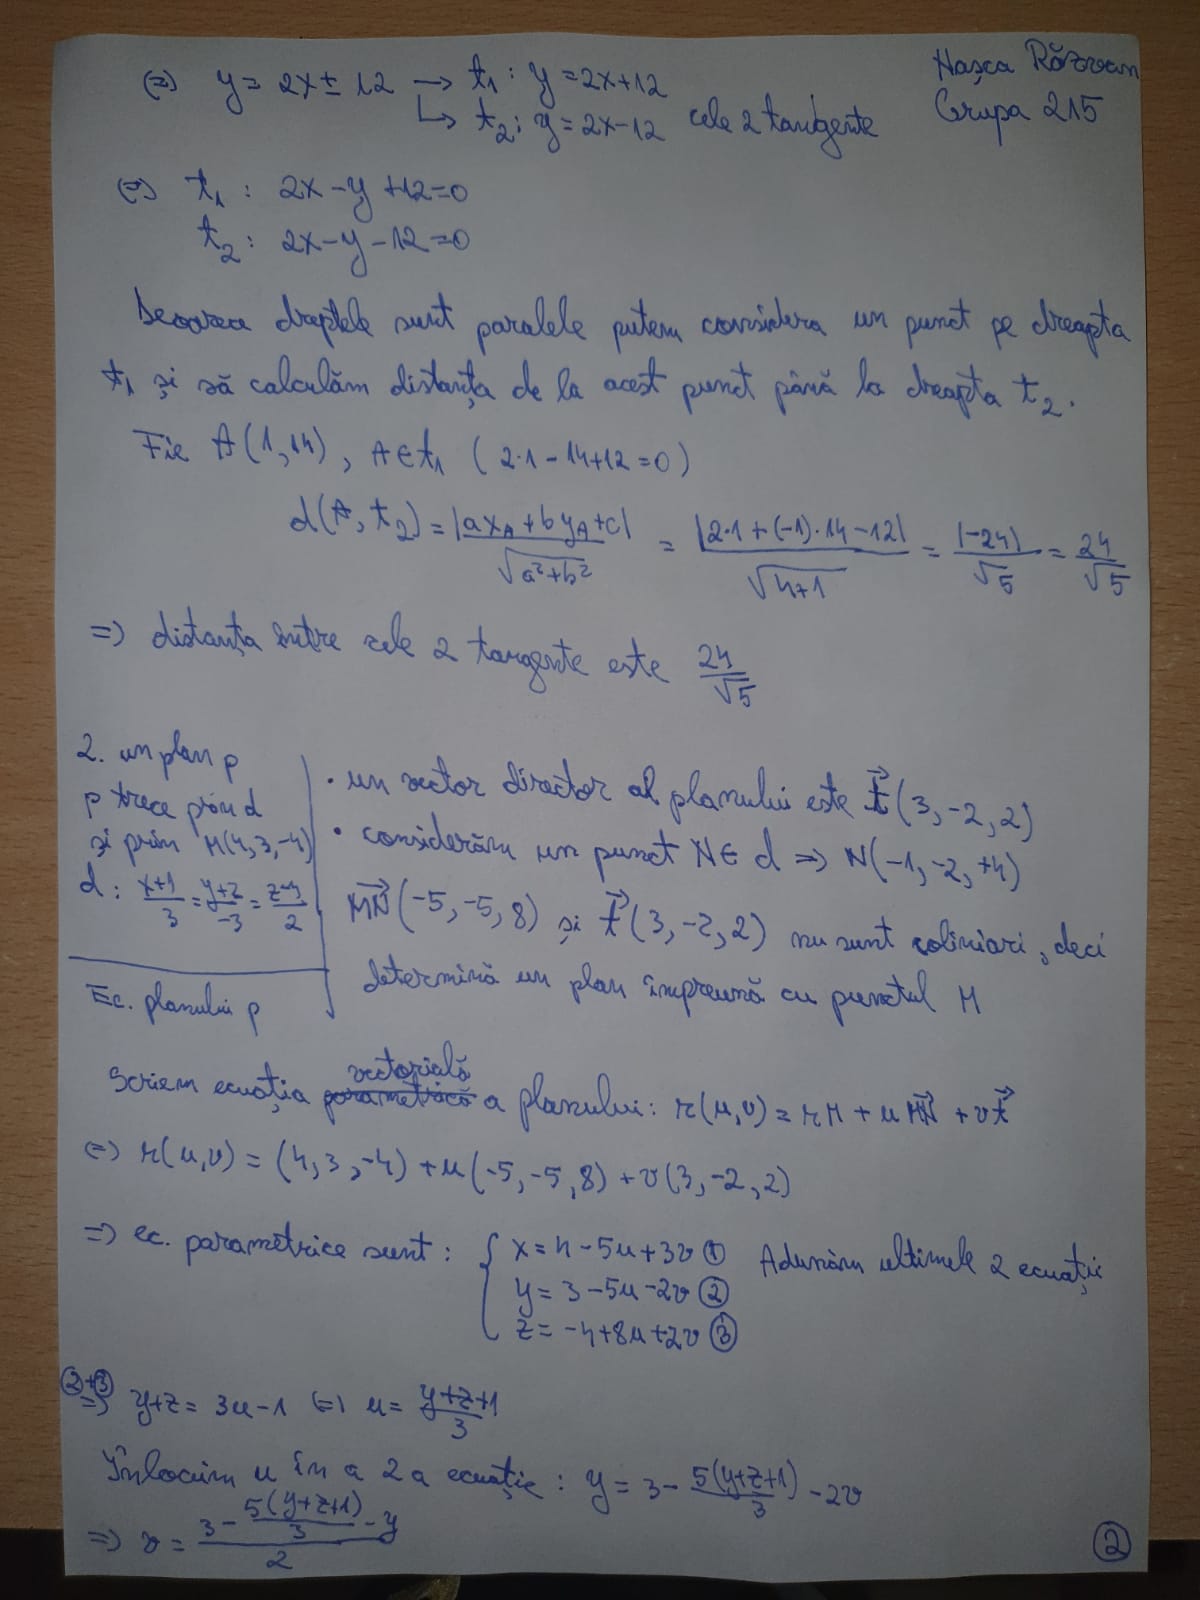 Hașca Răzvan
Grupa 215
(=) y = 2x ± 12 → t1 : y = 2x+12
↳ t2 : y = 2x-12 cele 2 tangente
(=) t1 : 2x - y + 12 = 0
t2 : 2x - y - 12 = 0
Deoarece dreptele sunt paralele putem considera un punct pe dreapta
t1 și să calculăm distanța de la acest punct până la dreapta t2.
Fie A(1,14), A ∈ t1 ( 2·1 - 14+12 = 0 )
d(A, t2) = |axA + byA + c| / √(a²+b²) = |2·1 + (-1)·14 - 12| / √(4+1) = |-24| / √5 = 24/√5
=> distanța între cele 2 tangente este 24/√5
2. un plan p
p trece prin d
și prin M(4,3,-4)
d : (x+1)/3 = (y+2)/-3 = (z-4)/2
Ec. planului p
• un vector director al planului este t⃗(3,-2,2)
• considerăm un punct N ∈ d => N(-1,-2,+4)
MN⃗(-5,-5,8) și t⃗(3,-2,2) nu sunt coliniari, deci
determină un plan împreună cu punctul M
vectorială
Scriem ecuația parametrică a planului: r(u,v) = rM + u MN⃗ + v t⃗
(=) r(u,v) = (4,3,-4) + u(-5,-5,8) + v(3,-2,2)
=> ec. parametrice sunt : { x = 4 - 5u + 3v ① Adunăm ultimele 2 ecuații
y = 3 - 5u - 2v ②
z = -4 + 8u + 2v ③
②+③
=> y+z = 3u - 1 (=) u = (y+z+1)/3
Înlocuim u în a 2 a ecuație : y = 3 - 5(y+z+1)/3 - 2v
=> v = (3 - 5(y+z+1)/3 - y)/2
②